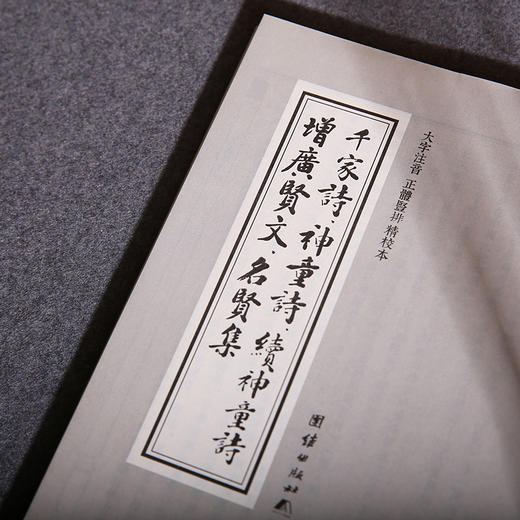 大字注音 正體豎排 精校本
千家詩·神童詩·續神童詩
增廣賢文·名賢集
團結出版社